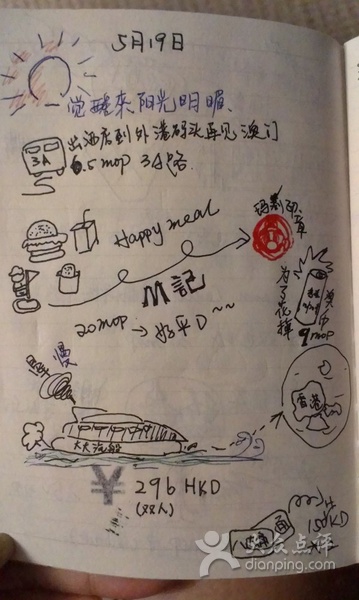 5月19日
一觉醒来阳光明媚、
出酒店到外港码头再见澳门
3A
6.5mop 3A路
Happy meal
玛嘉印章
M記
20mop → 好平D~~
为了花掉
澳币
9mop
慢
香港
大大汽船
¥ 296 HKD
(双人)
15HKD
大众点评
dianping.com